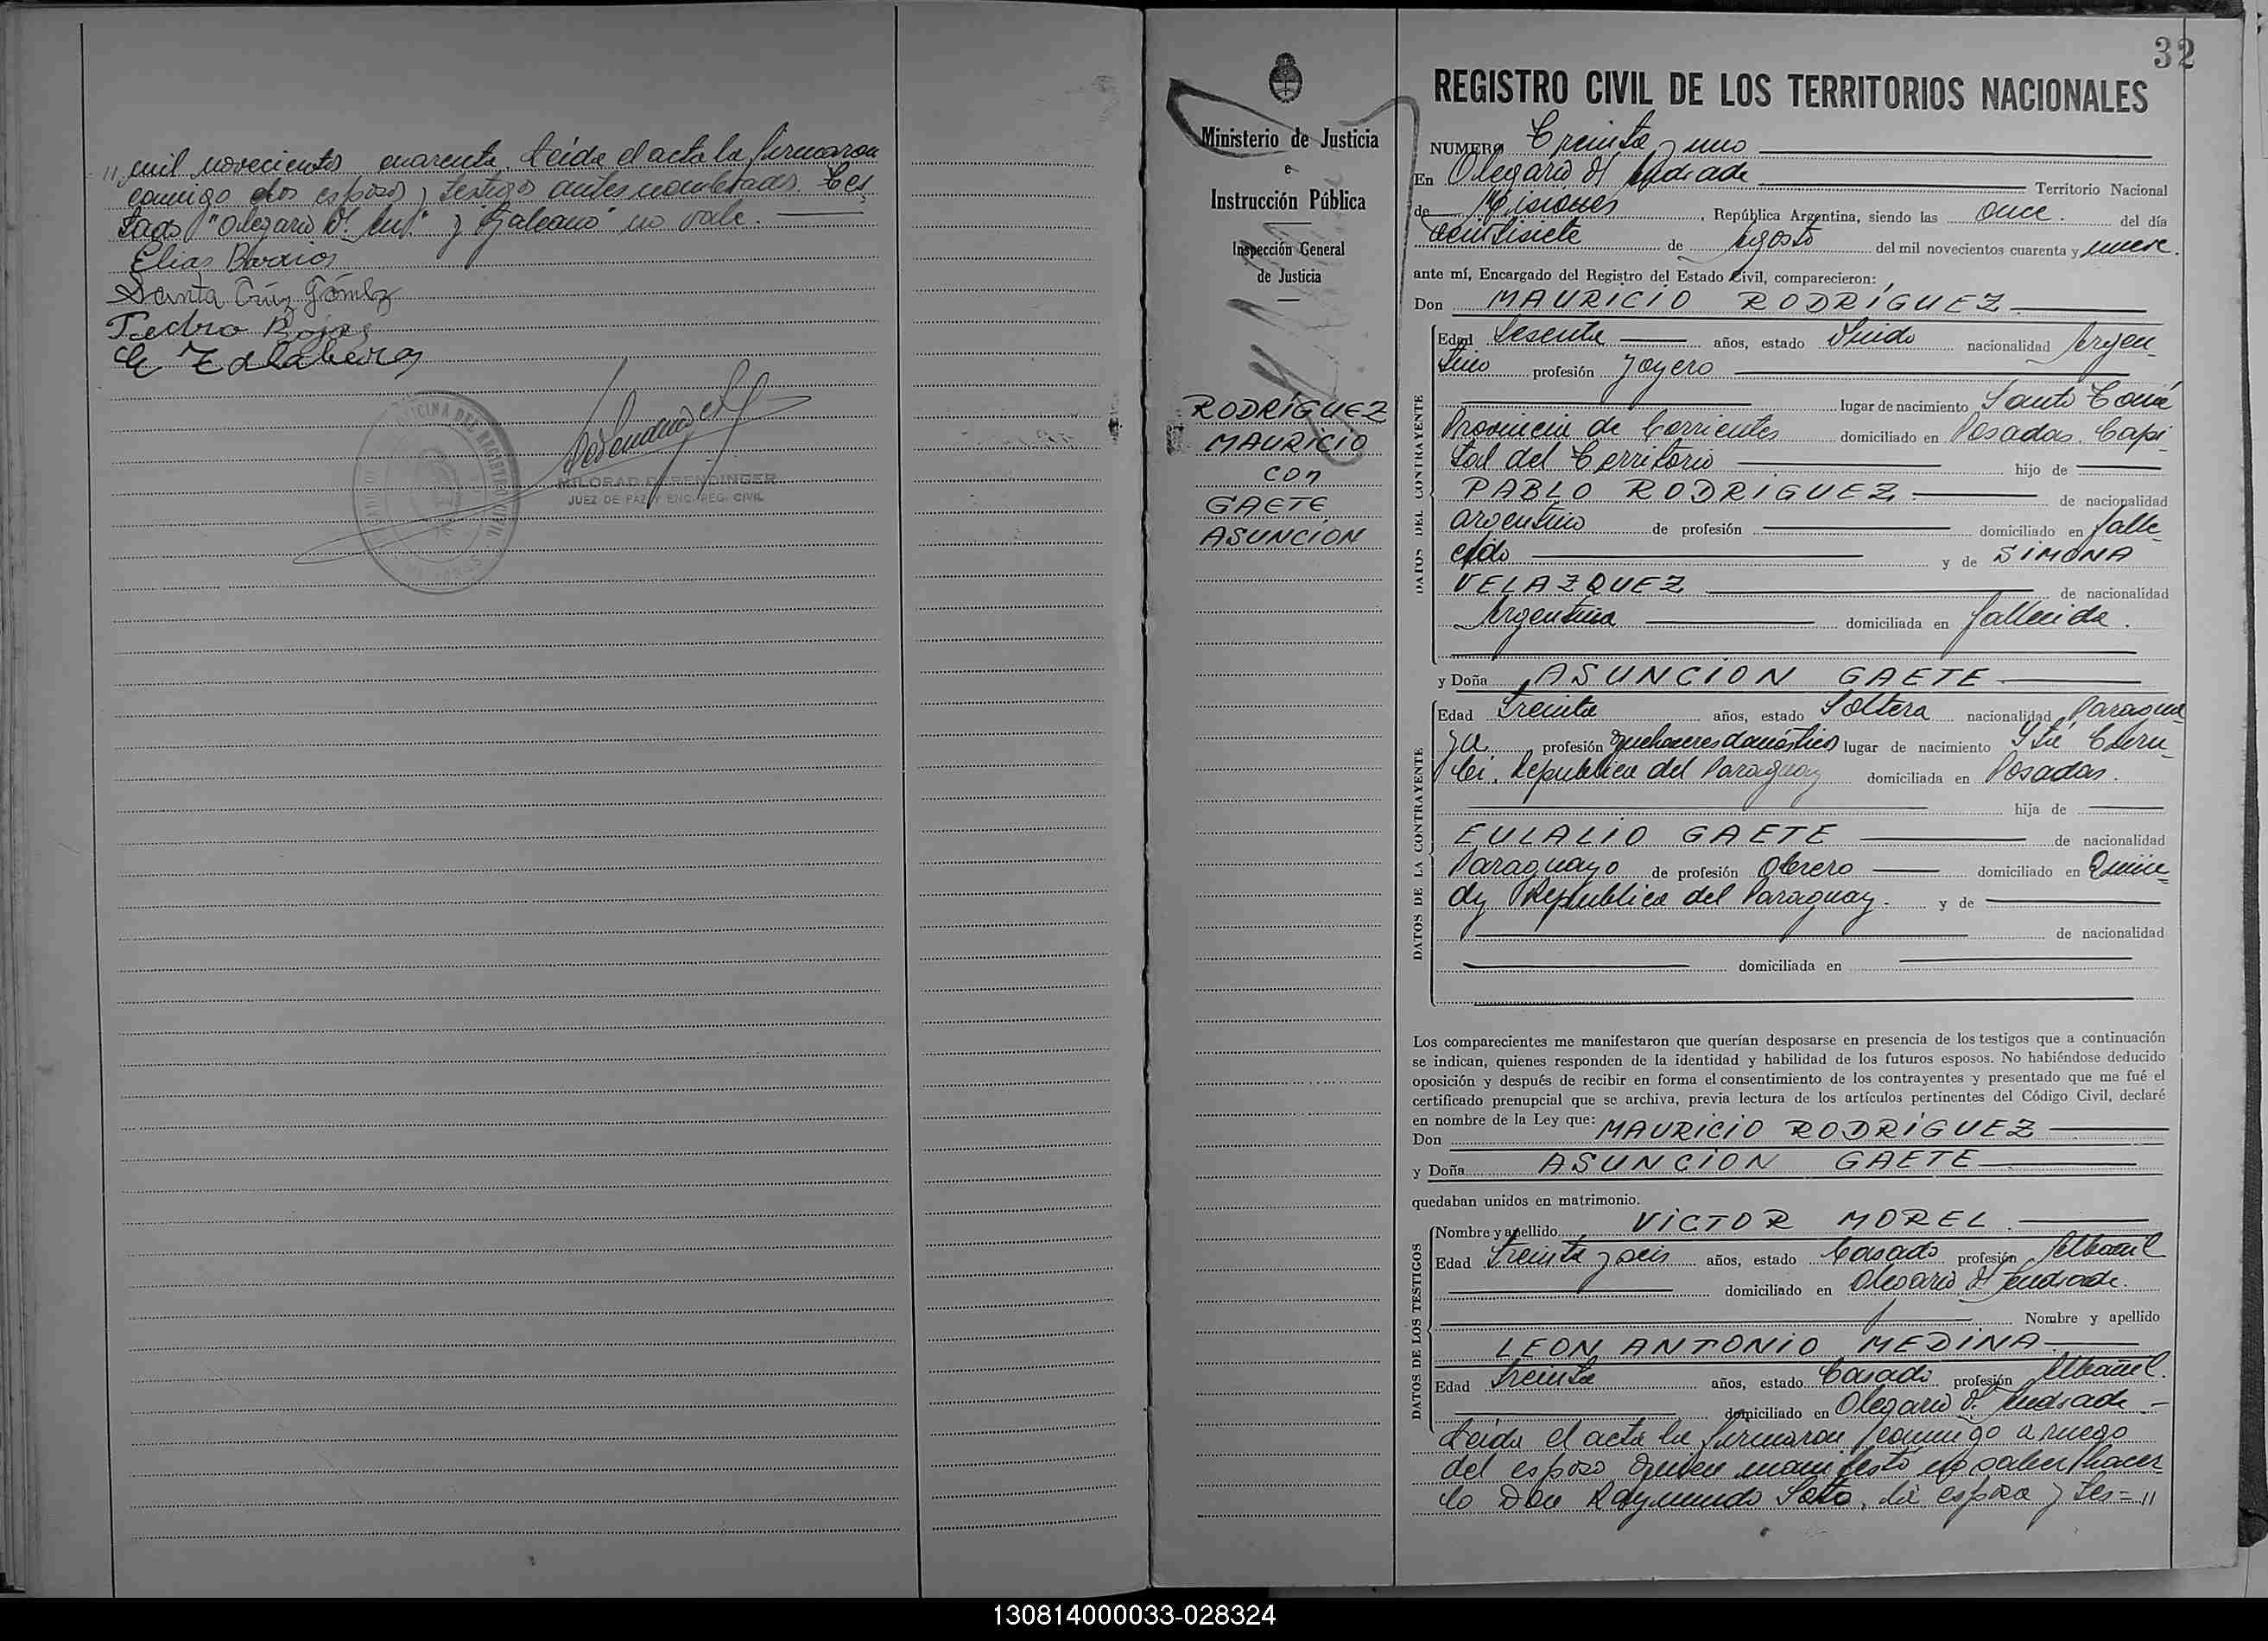 " mil novecientos cuarenta. Leida el acta la firmaron
conmigo los esposos y testigos antes nombrados. Tes
tado "Olegario V. And." y "Galeano" no vale.
Elias Barrios
Santa Cruz Gómez
Pedro Rojas
OFICINA DEL REGISTRO CIVIL
MILORAD BERENDINGER
JUEZ DE PAZ Y ENC. REG. CIVIL
32
Ministerio de Justicia
e
Instrucción Pública
Inspección General
de Justicia
RODRIGUEZ
MAURICIO
con
GAETE
ASUNCION
REGISTRO CIVIL DE LOS TERRITORIOS NACIONALES
NUMERO Treinta y uno
En Olegario V. Andrade Territorio Nacional
de Misiones, República Argentina, siendo las once del día
veintisiete de agosto del mil novecientos cuarenta y nueve.
ante mí, Encargado del Registro del Estado Civil, comparecieron:
Don MAURICIO RODRÍGUEZ
DATOS DEL CONTRAYENTE
Edad Sesenta años, estado Viudo nacionalidad Argen-
tino profesión Joyero
lugar de nacimiento Santo Tomé
Provincia de Corrientes domiciliado en Posadas. Capi-
tal del Territorio hijo de
PABLO RODRIGUEZ de nacionalidad
argentino de profesión domiciliado en falle-
cido y de SIMONA
VELAZQUEZ de nacionalidad
Argentina domiciliada en fallecida.
y Doña ASUNCION GAETE
DATOS DE LA CONTRAYENTE
Edad Treinta años, estado Soltera nacionalidad Paragua
ya profesión quehaceres domésticos lugar de nacimiento
República del Paraguay domiciliada en Posadas.
hija de
EULALIO GAETE de nacionalidad
Paraguayo de profesión Obrero domiciliado en Quiin-
dy República del Paraguay. y de
de nacionalidad
domiciliada en
Los comparecientes me manifestaron que querían desposarse en presencia de los testigos que a continuación
se indican, quienes responden de la identidad y habilidad de los futuros esposos. No habiéndose deducido
oposición y después de recibir en forma el consentimiento de los contrayentes y presentado que me fué el
certificado prenupcial que se archiva, previa lectura de los artículos pertinentes del Código Civil, declaré
en nombre de la Ley que:
Don MAURICIO RODRÍGUEZ
y Doña ASUNCION GAETE
quedaban unidos en matrimonio.
DATOS DE LOS TESTIGOS
Nombre y apellido VICTOR MOREL
Edad treinta y seis años, estado Casado profesión Albañil
domiciliado en Olegario V. Andrade.
Nombre y apellido
LEON ANTONIO MEDINA
Edad treinta años, estado Casado profesión Albañil.
domiciliado en Olegario V. Andrade.-
Leida el acta la firmaron conmigo a ruego
del esposo quien manifestó no saber hacer-
lo Don Raymundo Soto, la esposa y tes="
130814000033-028324